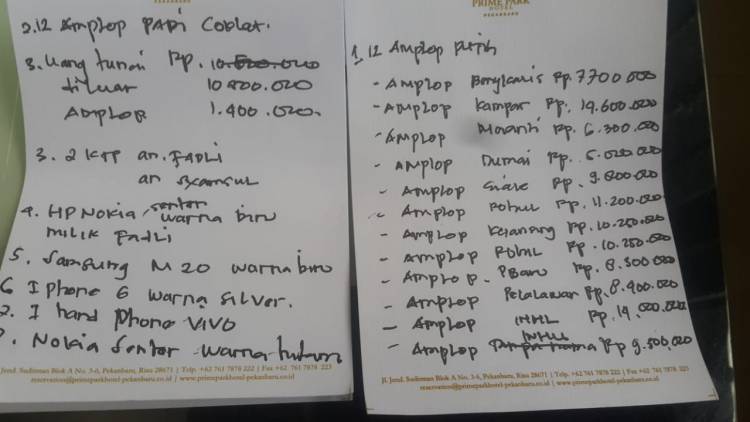 PEKANBARU
2.12 Amplop PADI Coklat.
3. Uang tunai Rp. 10.
diluar 10.800.000
Amplop 1.400.000.
3. 2 KTP an. FADLI
an SYAMSUL
4. HP NOKIA senter warna biru
milik FADLI
5. Samsung M 20 warna biru
6 Iphone 6 warna silver.
2. 1 hand phone VIVO
Nokia Senter warna hitam
Jend. Sudirman Blok A No. 3-6, Pekanbaru, Riau 28671 | Telp. +62 761 7878 222 | Fax +62 761 7878 223
reservation@primeparkhotel-pekanbaru.co.id | www.primeparkhotel-pekanbaru.co.id
PRIME PARK
HOTEL
PEKANBARU
1. 12 Amplop putih
- Amplop Bengkalis Rp. 7700.000
- Amplop Kampar Rp. 19.600.000
- Amplop Meranti Rp. 6.300.000
- Amplop Dumai Rp. 5.020.000
- Amplop Siak Rp. 9.800.000
- Amplop Rohul Rp. 11.200.000
- Amplop Rp. 10.250.000
- Amplop Rohil Rp. 10.250.000
- Amplop - PBaru Rp. 8.300.000
- Amplop Pelalawan Rp. 8.400.000
- Amplop INHIL Rp. 14.000.000
- Amplop INHU Rp 9.300.000
Jl. Jend. Sudirman Blok A No. 3-6, Pekanbaru, Riau 28671 | Telp. +62 761 7878 222 | Fax +62 761 7878 223
reservation@primeparkhotel-pekanbaru.co.id | www.primeparkhotel-pekanbaru.co.id